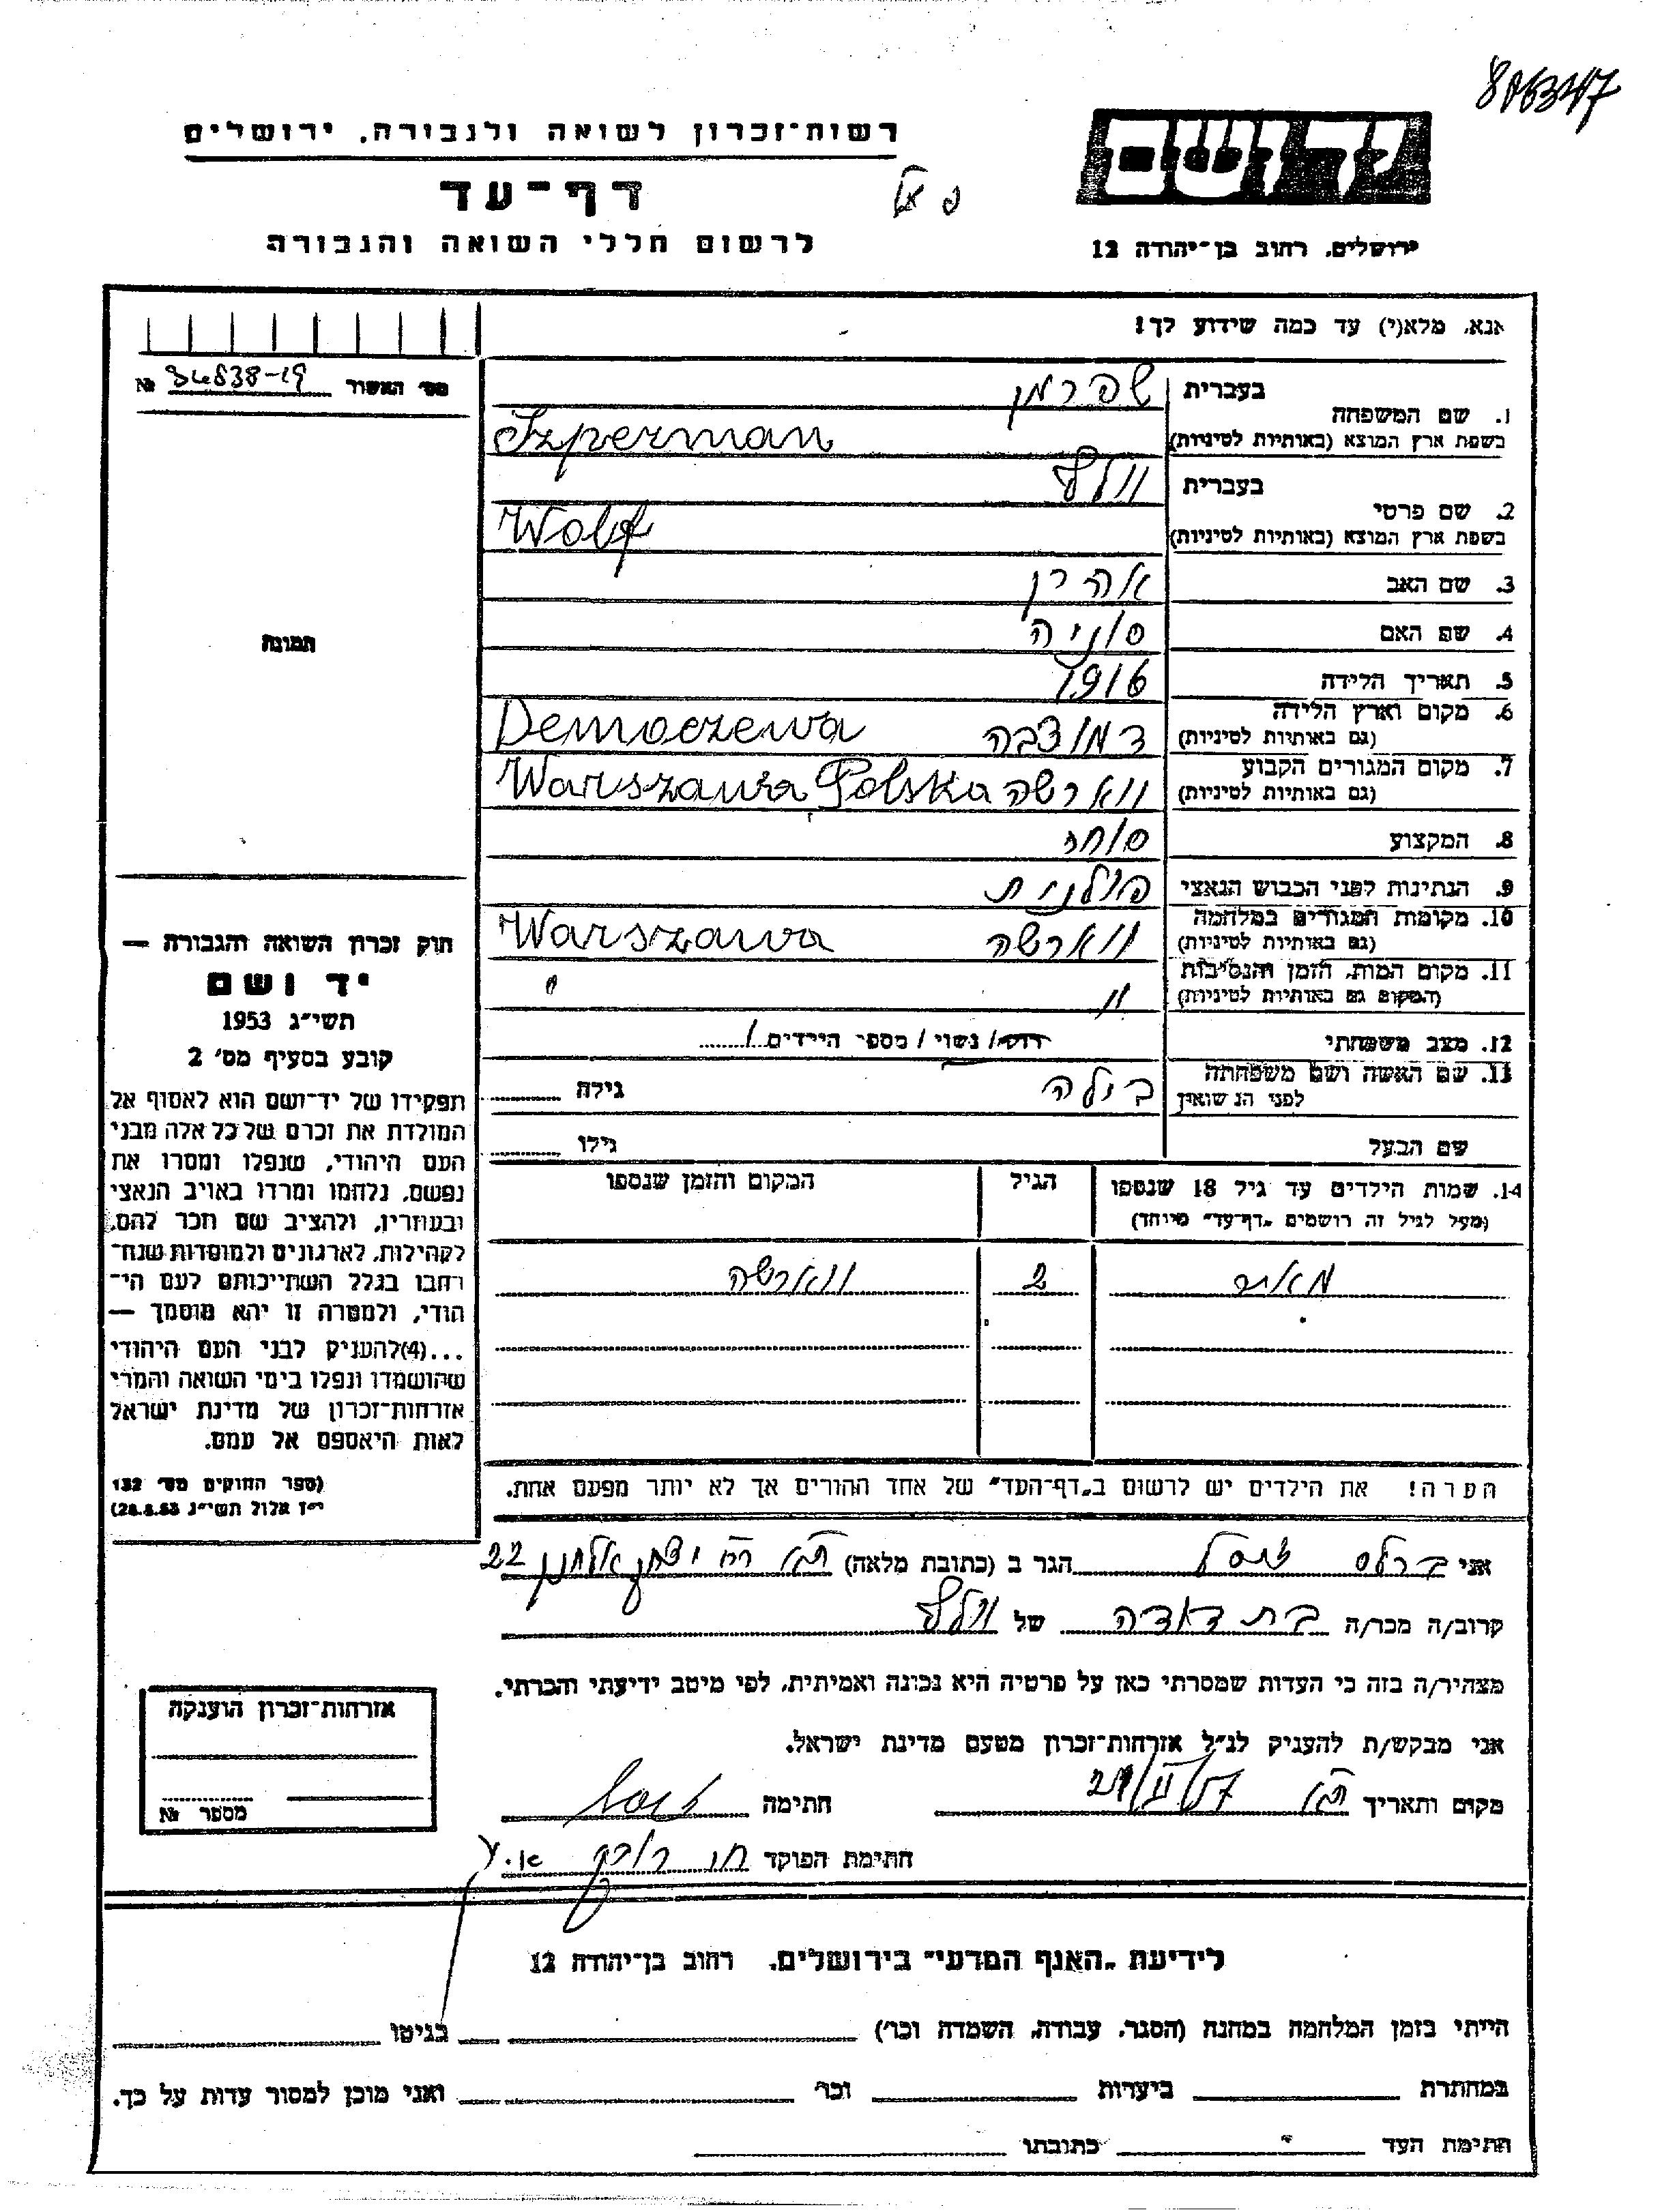 רשות־זכרון לשואה ולגבורה, ירושלים
יד ושם
דף־עד
לרשום חללי השואה והגבורה
ירושלים, רחוב בן־יהודה 12
אנא, מלא(י) עד כמה שידוע לך!
מס' האשור № 34838-19
1. שם המשפחה בעברית שפרמן
בשפת ארץ המוצא (באותיות לטיניות) Szperman
2. שם פרטי בעברית וולף
בשפת ארץ המוצא (באותיות לטיניות) Wolf
3. שם האב אהרן
4. שם האם סוניה
5. תאריך הלידה 1916
6. מקום וארץ הלידה (גם באותיות לטיניות) דמוצבה Democzewa
7. מקום המגורים הקבוע (גם באותיות לטיניות) ווארשה Warszawa Polska
8. המקצוע סוחר
9. הנתינות לפני הכבוש הנאצי פולנית
10. מקומות המגורים במלחמה (גם באותיות לטיניות) ווארשה Warszawa
11. מקום המות, הזמן והנסיבות (המקום גם באותיות לטיניות) "
12. מצב משפחתי רווק / נשוי / מספר הילדים 1
13. שם האשה ושם משפחתה לפני הנשואין ביילה גילה
שם הבעל גילו
14. שמות הילדים עד גיל 18 שנספו (מעל לגיל זה רושמים "דף־עד" מיוחד) הגיל המקום והזמן שנספו
מאיר 2 ווארשה
הערה! את הילדים יש לרשום ב"דף־העד" של אחד ההורים אך לא יותר מפעם אחת.
תמונה
חוק זכרון השואה והגבורה —
יד ושם
תשי"ג 1953
קובע בסעיף מס' 2
תפקידו של יד־ושם הוא לאסוף אל
המולדת את זכרם של כל אלה מבני
העם היהודי, שנפלו ומסרו את
נפשם, נלחמו ומרדו באויב הנאצי
ובעוזריו, ולהציב שם וזכר להם,
לקהילות, לארגונים ולמוסדות שנח־
רבו בגלל השתייכותם לעם הי־
הודי, ולמטרה זו יהא מוסמך —
...(4)להעניק לבני העם היהודי
שהושמדו ונפלו בימי השואה והמרי
אזרחות־זכרון של מדינת ישראל
לאות היאספם אל עמם.
(ספר החוקים מס' 132
י"ז אלול תשי"ג 28.8.53)
אני הגר ב (כתובת מלאה) יצחק אלחנן 22
קרוב/ה מכר/ה בת דודה של וולף
מצהיר/ה בזה כי העדות שמסרתי כאן על פרטיה היא נכונה ואמיתית, לפי מיטב ידיעתי והכרתי.
אני מבקש/ת להעניק לנ"ל אזרחות־זכרון מטעם מדינת ישראל.
מקום ותאריך חתימה
חתימת הפוקד
אזרחות־זכרון הוענקה
מספר №
לידיעת "האגף המדעי" בירושלים, רחוב בן־יהודה 12
הייתי בזמן המלחמה במחנה (הסגר, עבודה, השמדה וכו') בגיטו
במחתרת ביערות וכו' ואני מוכן למסור עדות על כך.
חתימת העד כתובתו